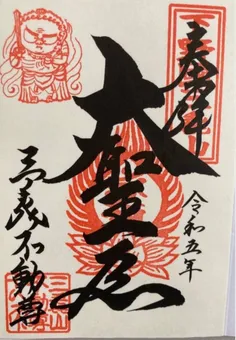 奉拝
大聖
令和五年
三義不動尊